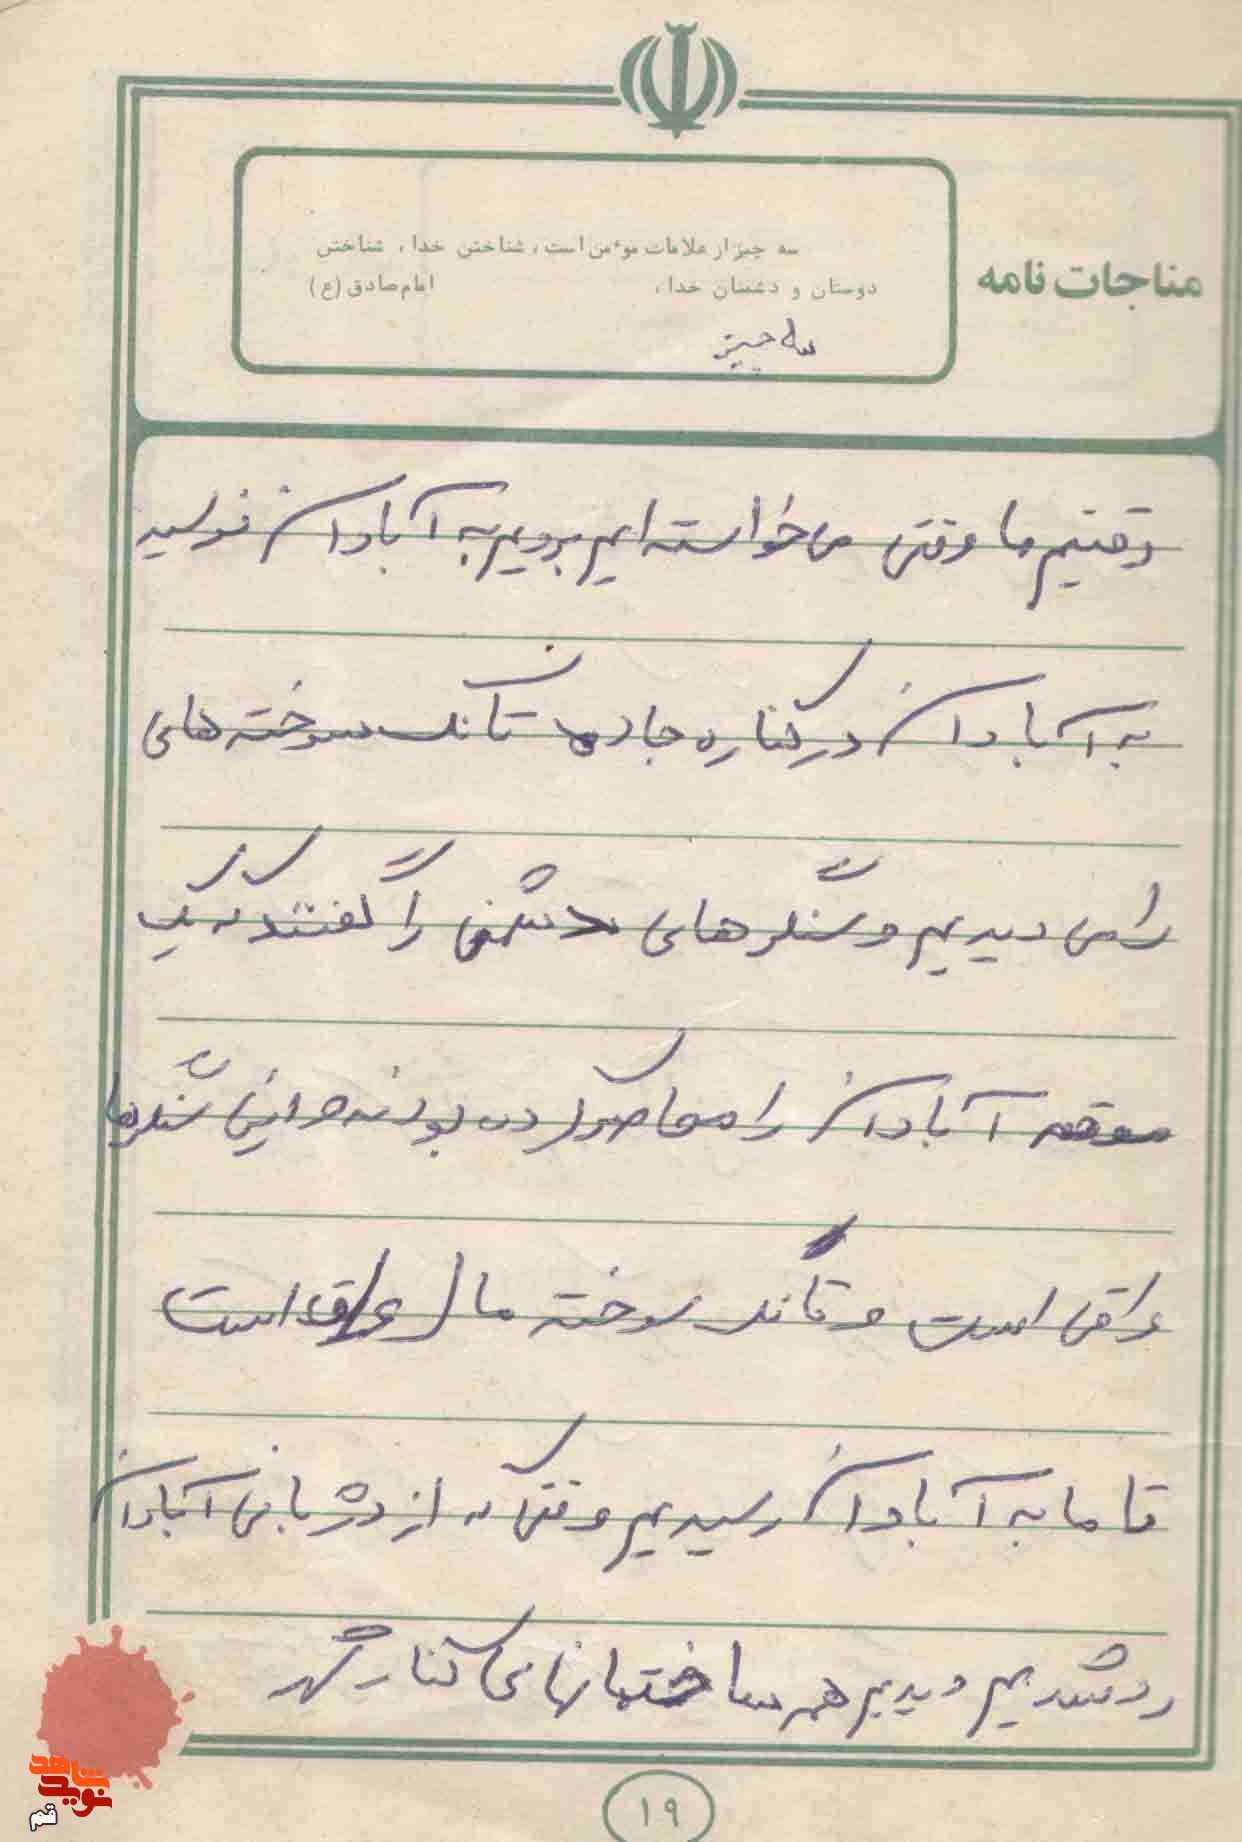 مناجات نامه
سه چیز از علامات موءمن است، شناختن خدا، شناختن
دوستان و دشمنان خدا، امام صادق (ع)
سه چیز
رفتیم ما وقتی می خواسته ایم برویم به آبادان نرسید
به آبادان در کناره جاده تانک سوخته های
رامی دیدیم و سنگرهای دشمنی را گفتند که یک
موقعه آبادان را محاصره کرده بودند و این سنگرها
عراقی است و تانک سوخته مال عراق است
تا ما به آبادان رسیدیم وقتی که از دژبانی آبادان
رد شدیم دیدیم همه ساختمانهای کنار شهر
۱۹
شاهد
نوید
قم